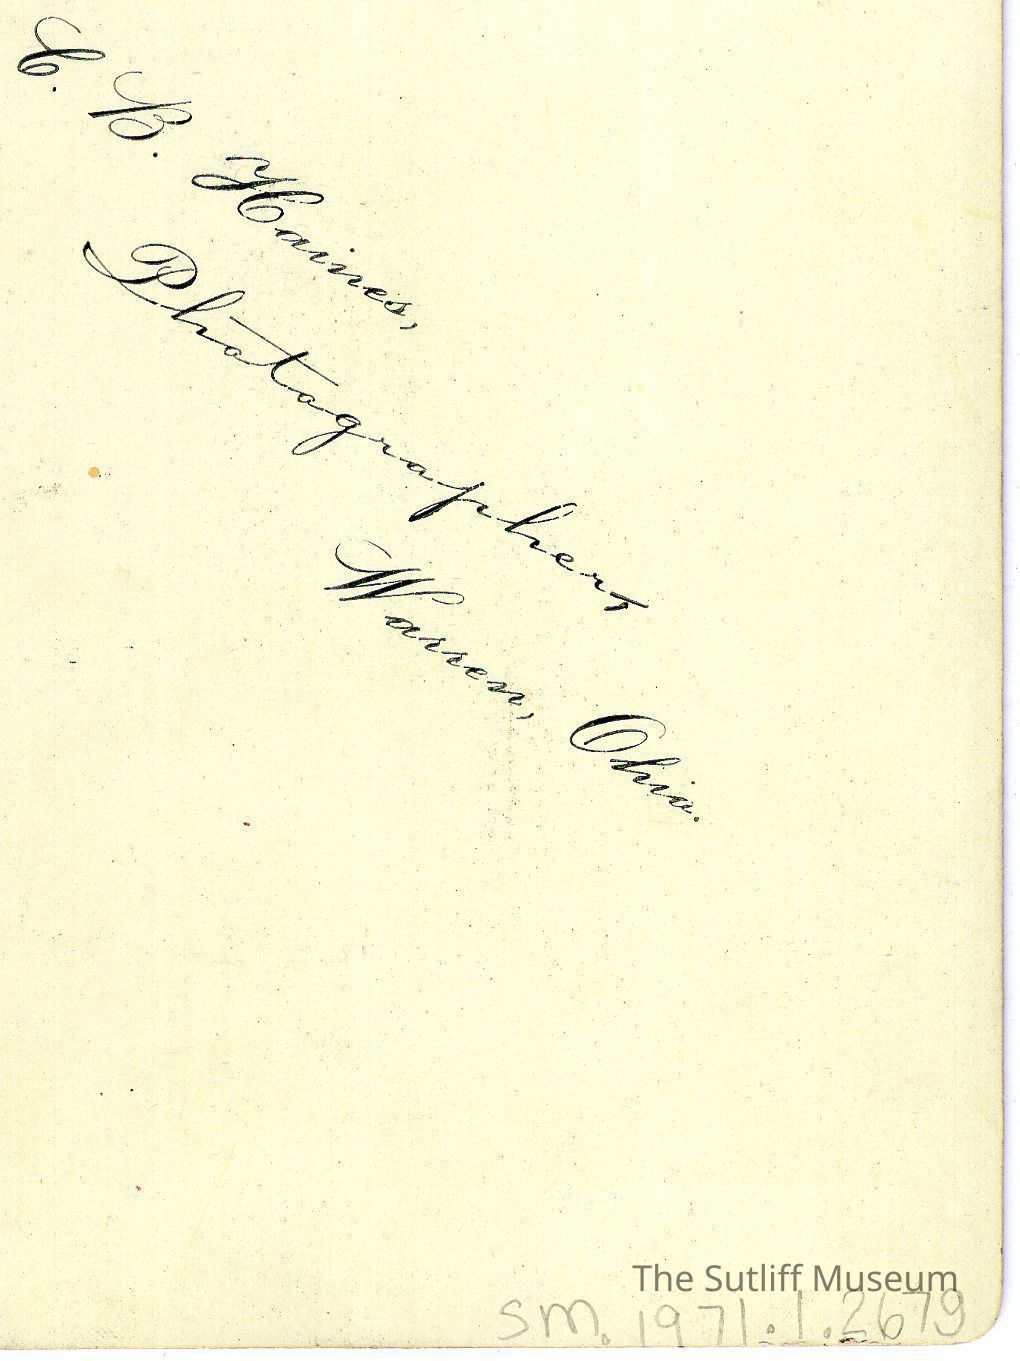 C. B. Haines,
Photographer,
Warren, Ohio.
The Sutliff Museum
SM.1971.1.2679